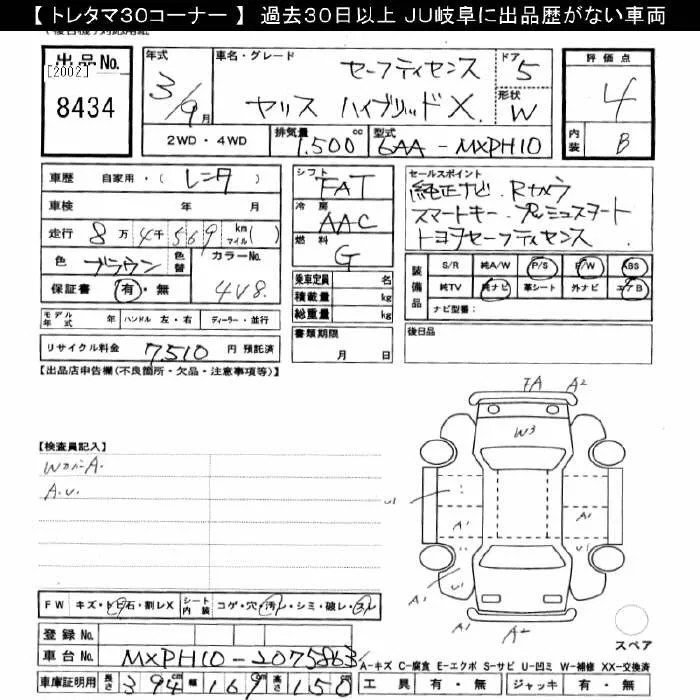 【トレタマ30コーナー】 過去30日以上 JU岐阜に出品歴がない車両
出品No. [2002] 8434
年式 3/9月
車名・グレード セーフティセンス ヤリス ハイブリッドX.
ドア 5
形状 W
評価点 4
内装 B
2WD・4WD 排気量 1.500 cc 型式 6AA-MXPH10
車歴 自家用・( レニタ )
車検 年 月
走行 8万4千569 km マイル( )
色 ブラウン 色替 カラーNo. 4V8.
保証書 有・無
シフト FAT
冷房 AAC
燃料 G
乗車定員 名
積載量 kg
総重量 kg
セールスポイント
純正ナビ. Rカメラ
スマートキー. プッシュスタート
トヨタセーフティセンス
装備品 S/R 純A/W P/S P/W ABS
純TV 純ナビ 革シート 外ナビ エアB
ナビ型番:
モデル年式 年 ハンドル 左・右 ディーラー・並行
リサイクル料金 7,510 円 預託済
書類期限 月 日
後日品
【出品店申告欄(不良箇所・欠品・注意事項等)】
FA A2
W3
【検査員記入】
Wカバー A.
A.U.
U1
A1 A1
A1 U1 U1
A2
スペア
FW キズ・トビ石・割レX シート内装 コゲ・穴・汚レ・シミ・破レ・スレ
登録No.
車台No. MXPH10-2075863
A-キズ C-腐食 E-エクボ S-サビ U-凹ミ W-補修 XX-交換済
車庫証明用 長さ 394cm 幅 169cm 高さ 150cm
工具 有・無 ジャッキ 有・無